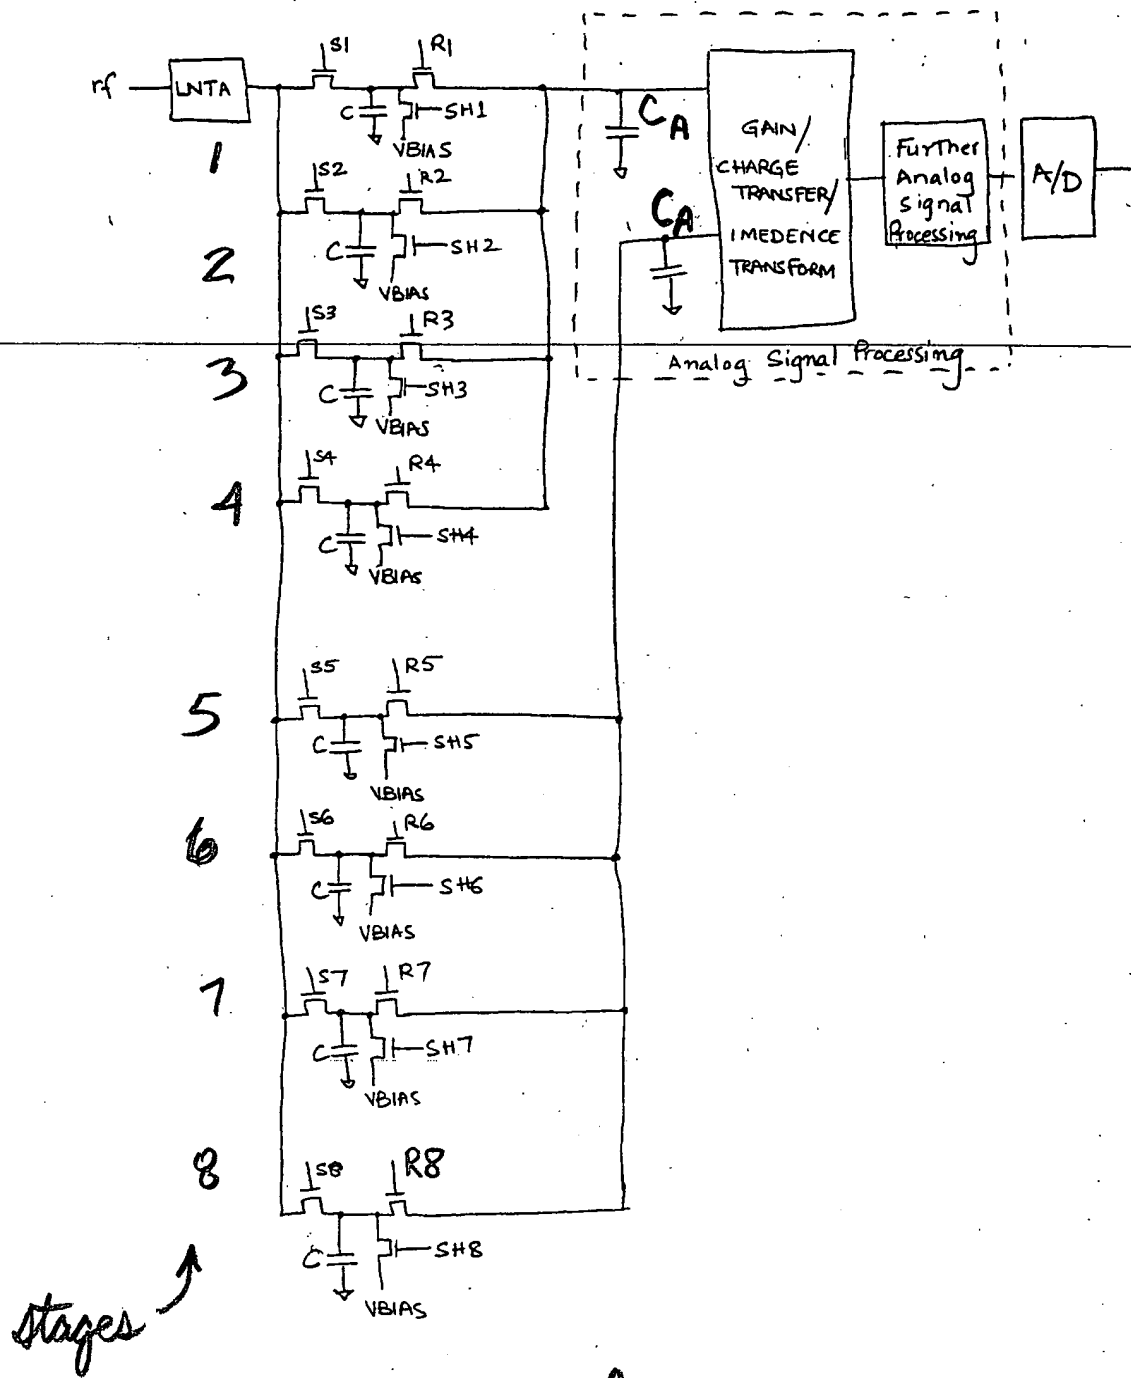 S1
R1
rf
LNTA
C
SH1
VBIAS
1
S2
R2
C
SH2
VBIAS
2
S3
R3
C
SH3
VBIAS
3
S4
R4
C
SH4
VBIAS
4
S5
R5
C
SH5
VBIAS
5
S6
R6
C
SH6
VBIAS
6
S7
R7
C
SH7
VBIAS
7
S8
R8
C
SH8
VBIAS
8
stages
CA
CA
GAIN/
CHARGE
TRANSFER/
IMEDENCE
TRANSFORM
Further
Analog
Signal
Processing
A/D
Analog Signal Processing